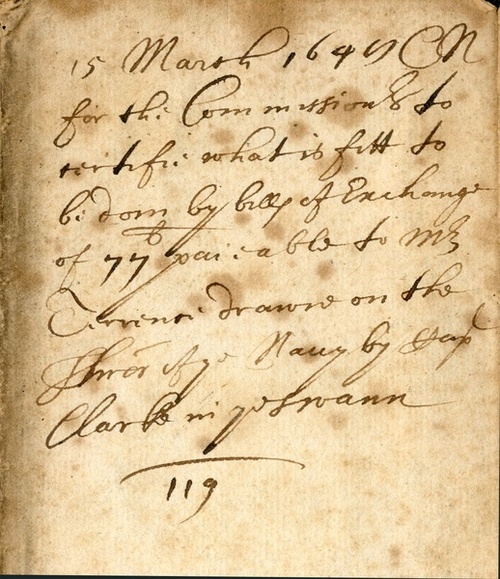 15 March 1649 CN
for the Commission.rs to
certifie what is fitt to
be don by bill of Exchange
of 77li paieable to Mr
Terrence drawne on the
Thre͠ar of ye Navy by Cap
Clarke in ye Swann
119